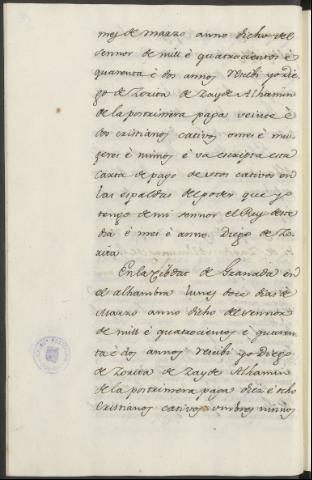 mes de marzo anno dicho del
sennor de mill è quatrocientos è
quarenta è dos annos recibi yo Die-
go de Zorita de Zayde Alhamin
de la postrimera paga veinte è
dos cristianos cativos omes è mu-
geres è ninos è va escripta esta
carta de pago de estos cativos en
las espaldas del poder que yo
tengo de mi sennor el Rey deste
dia è mes è anno. Diego de Zo-
rita.
En la Cibdat de Granada en
el alhambra lunes doce dias de
Marzo anno dicho del sennor
de mill è quatrocientos è quaren-
ta è dos annos recibi yo Diego
de Zorita de Zayde Alhamin
de la postrimera paga diez è ocho
Cristianos cativos ombres ninos